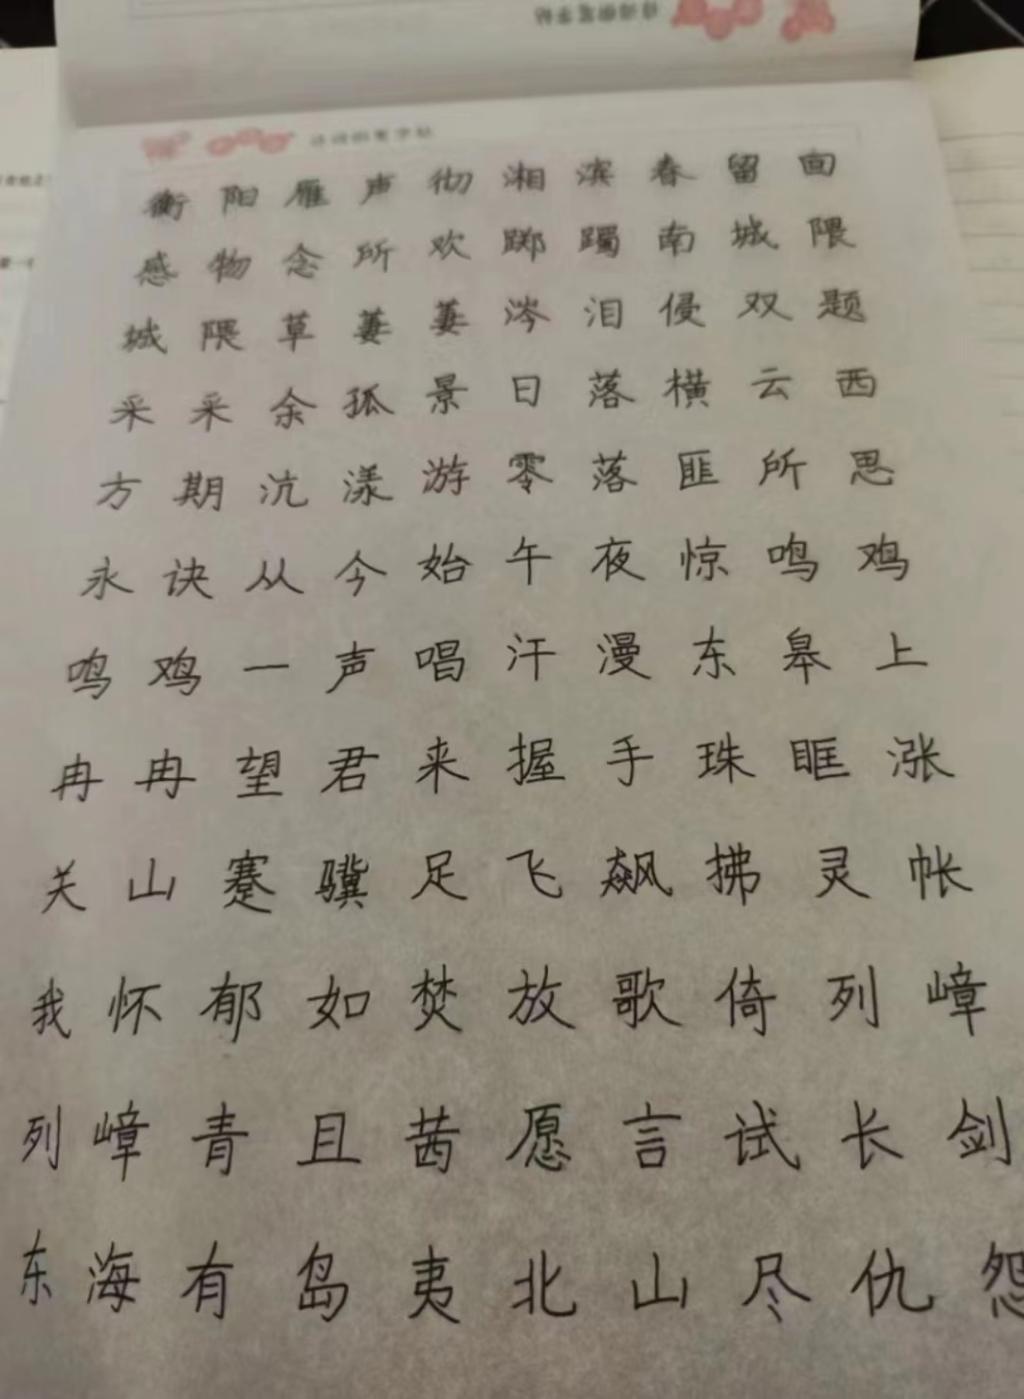 衡阳雁声彻湘滨春留回
感物念所欢踯躅南城隈
城隈草萋萋涔泪侵双题
采采余孤景日落横云西
方期沆漾游零落匪所思
永诀从今始午夜惊鸣鸡
鸣鸡一声唱汗漫东皋上
冉冉望君来握手珠眶涨
关山蹇骥足飞飙拂灵帐
我怀郁如焚放歌倚列嶂
列嶂青且茜愿言试长剑
东海有岛夷北山尽仇怨